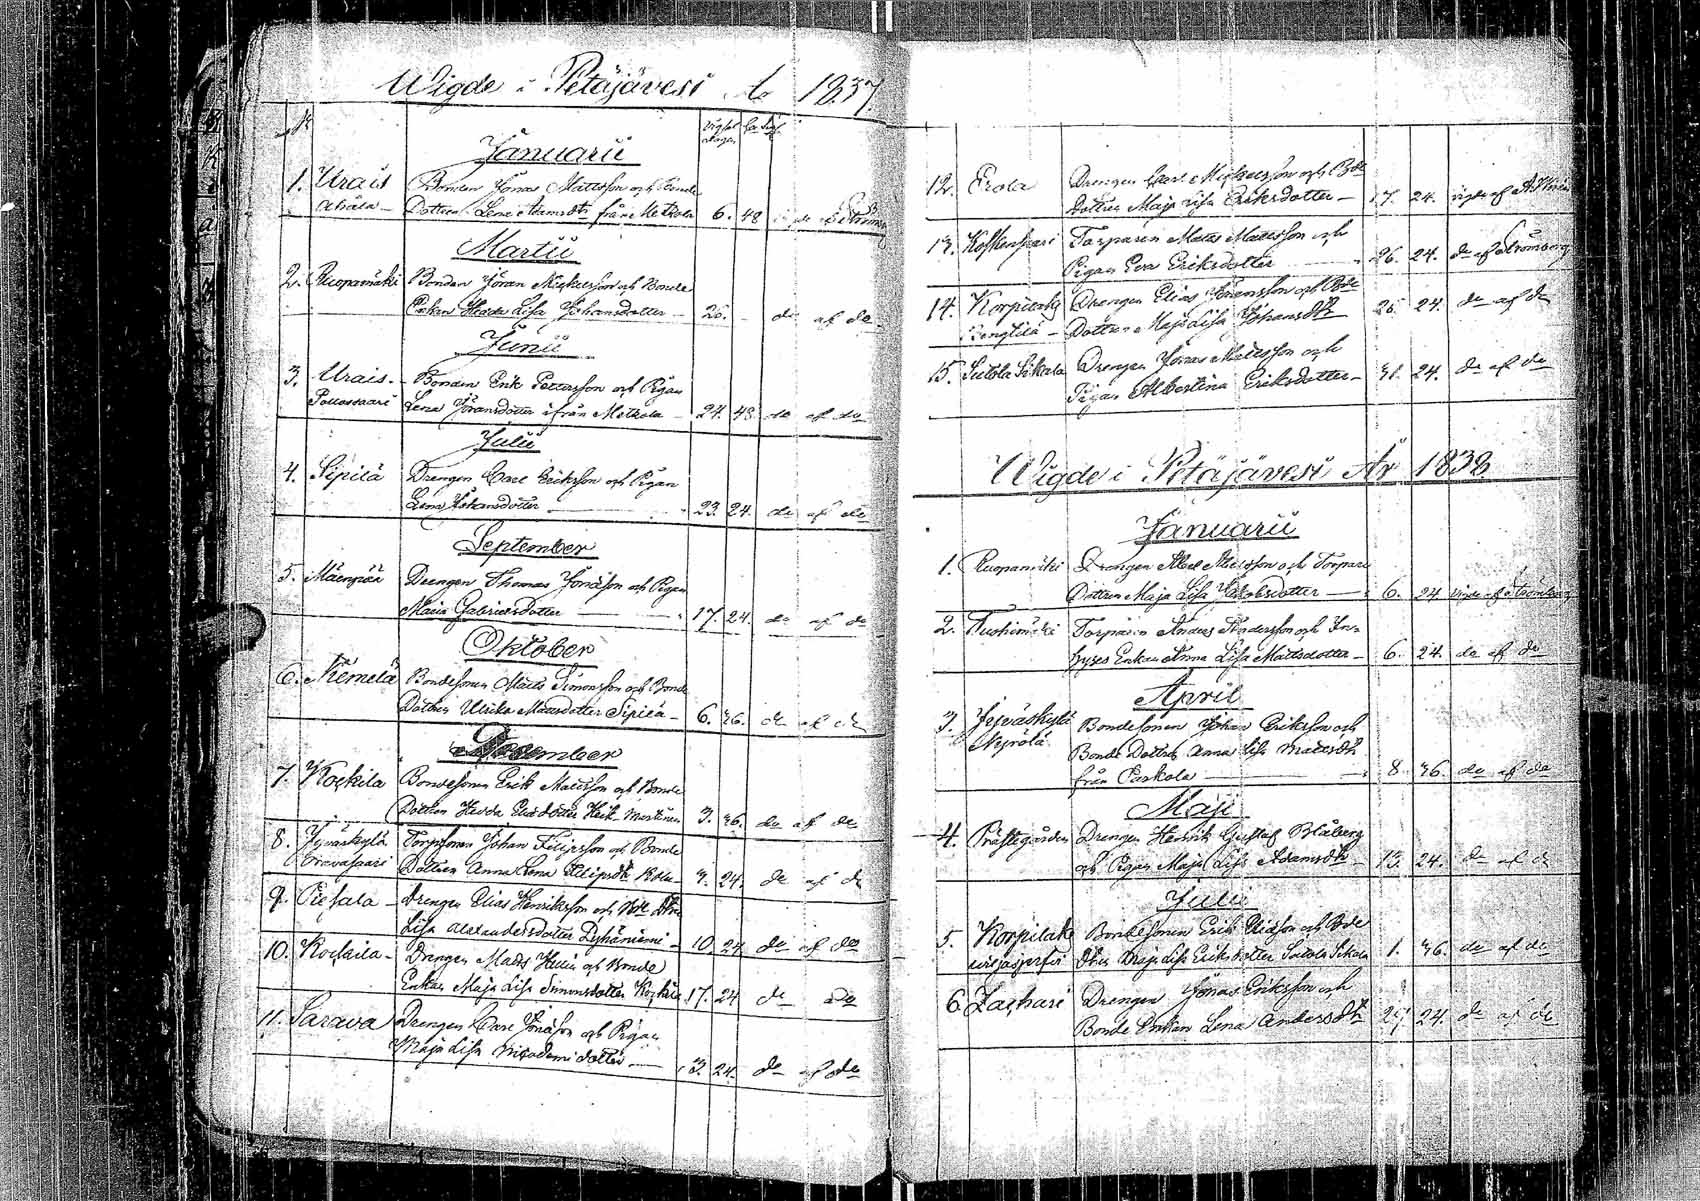 Wigde i Petäjävesi År 1837.
Januarii
1. Urais Bonden Jonas Mattsson och Bonde
Dottren Lena Adamsdtr från Metkola 6. 48
Martii
2. Ruopamäki Bonden Jöran Michelsson och Bonde
Enkan Hedda Lisa Johansdotter 26. do af do
Junii
3. Urais Bonden Erik Pettersson och Pigan
Lena Jöransdotter ifrån Metkola 24. 48. do af do
Julii
4. Sipilä Drengen Carl Eriksson och Pigan
Lena Johansdotter 23. 24. do af do
September
5. Mäenpää Drengen Thomas Jonasson och Pigan
Maria Gabrielsdotter 17. 24. do af do
Oktober
6. Niemelä Bondesonen Matts Simonsson och Bonde
Dottren Ulrika Mattsdotter Sipilä 6. 36. do af do
December
7. Koskila Bondesonen Erik Mattsson och Bonde
Dottren Hedda 3. 36. do af do
8. Jyväskylä Johan Filipsson och Bonde
Dottren Anna Lena 3. 24. do af do
9. Piesala Drengen Elias Henriksson och
Lisa Alexandersdotter 10. 24 do af do
10. Drengen Matts och Bonde
Enkan Maja Lisa Simonsdotter 17. 24 do do
11. Sarava Drengen Carl Jonasson och Pigan
Maja Lisa 3. 24. do af do
12. Erola Drengen Carl Michelsson och Bde
Dottren Maja Lisa Eriksdotter 17. 24. vigde af
13. Koskensaari Torparen Matts Mattsson och
Pigan Eva Eriksdotter 26. 24. do af Strömberg
14. Korpilaks Drengen Elias Jöransson och Bde
Bengtilä Dottren Maja Lisa Johansdtr 26. 24. do af do
15. Drengen Jonas Mattsson och
Pigan Albertina Eriksdotter 31. 24. do af do
Wigde i Petäjävesi År 1838
Januarii
1. Ruopamäki Drengen Abel Mattsson och Torpare
Dottren Maja Lisa Jakobsdotter 6. 24 vigde af Strömberg
2. Torparen Anders Andersson och In-
hyses Enkan Anna Lisa Mattsdotter 6. 24. do af do
April
3. Jyväskylä Bondesonen Johan Eriksson och
Nyrölä Bonde Dottren Anna Lisa Mattsdtr
från 8. 36. do af do
Maji
4. Prästegården Drengen Henrik Gustaf Blåberg
och Pigan Maja Lisa Adamsdtr 13. 24. do af do
Julii
5. Korpilaks Bondesonen Erik Eliasson och Bde
Maja Lisa Eriksdotter 1. 36. do af do
6. Zachari Drengen Jonas Eriksson och
Bonde Enkan Lena Andersdtr 24. do af do